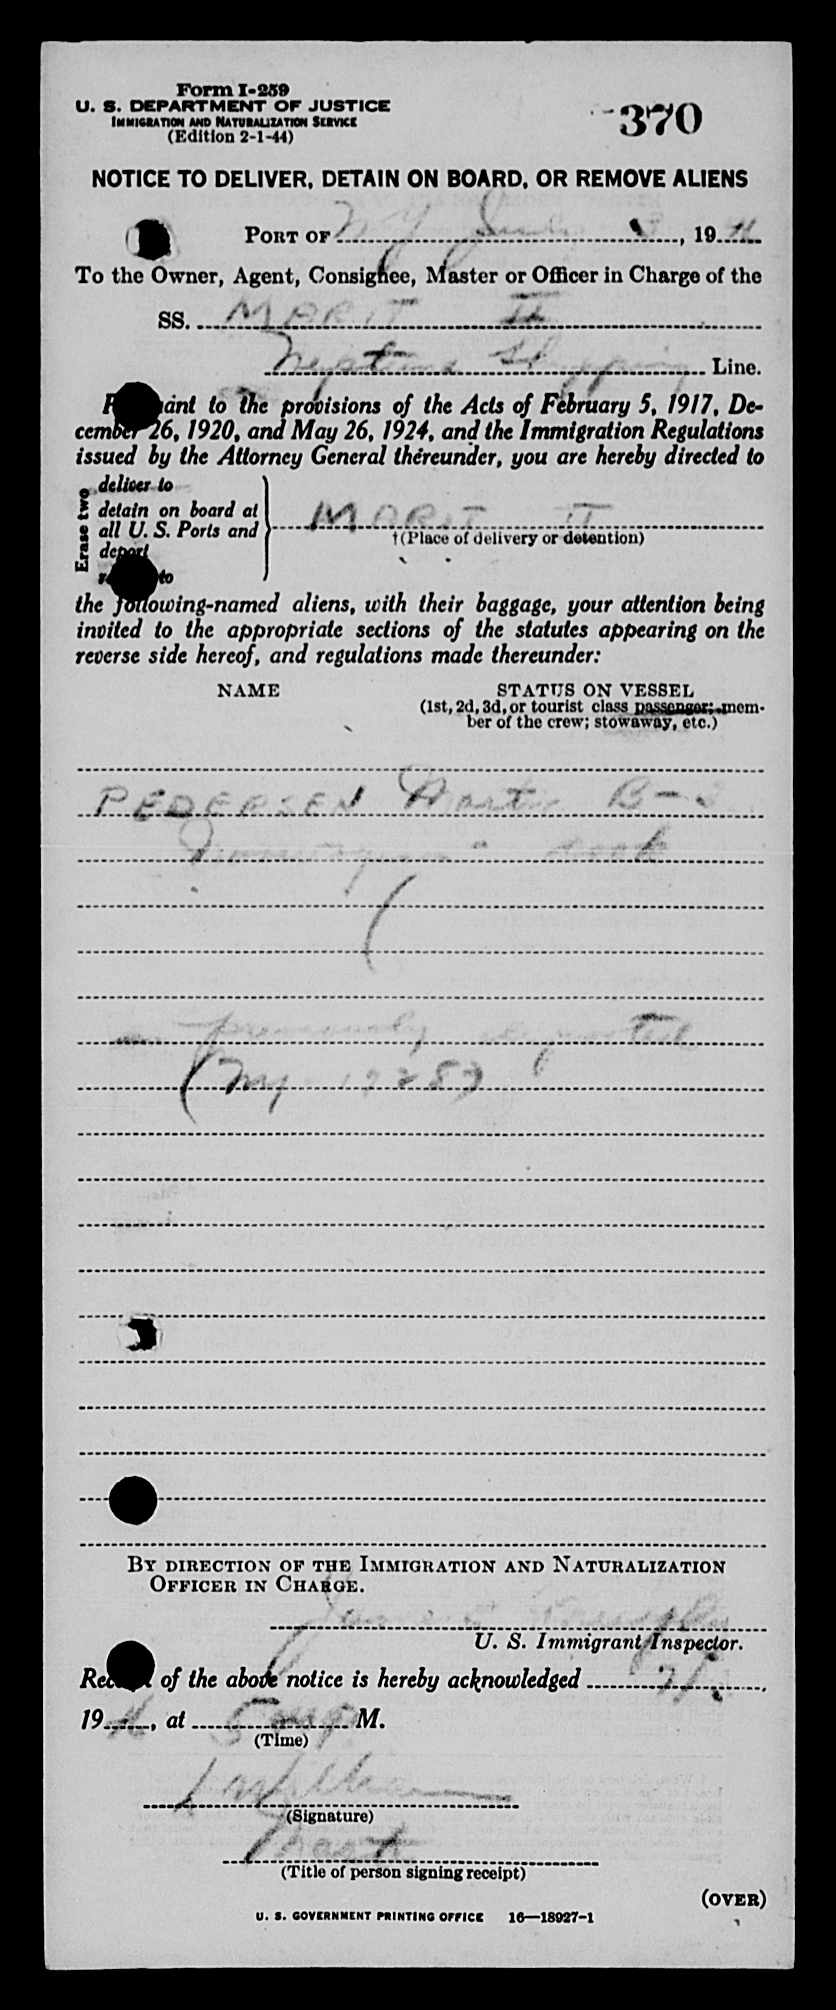 Form I-259
U. S. DEPARTMENT OF JUSTICE
IMMIGRATION AND NATURALIZATION SERVICE
(Edition 2-1-44)
370
NOTICE TO DELIVER, DETAIN ON BOARD, OR REMOVE ALIENS
PORT OF NY July, 19
To the Owner, Agent, Consignee, Master or Officer in Charge of the
SS. MARIT II
Neptune Shipping Line.
Pursuant to the provisions of the Acts of February 5, 1917, De-
cember 26, 1920, and May 26, 1924, and the Immigration Regulations
issued by the Attorney General thereunder, you are hereby directed to
Erase two
deliver to
detain on board at
all U. S. Ports and
deport
remove to
MARIT II
†(Place of delivery or detention)
the following-named aliens, with their baggage, your attention being
invited to the appropriate sections of the statutes appearing on the
reverse side hereof, and regulations made thereunder:
NAME
STATUS ON VESSEL
(1st, 2d, 3d, or tourist class passenger; mem-
ber of the crew; stowaway, etc.)
PEDERSEN Martin B-2
Norwegian
previously deported
(NY
BY DIRECTION OF THE IMMIGRATION AND NATURALIZATION
OFFICER IN CHARGE.
U. S. Immigrant Inspector.
Receipt of the above notice is hereby acknowledged
19, at 5 M.
(Time)
(Signature)
(Title of person signing receipt)
(OVER)
U. S. GOVERNMENT PRINTING OFFICE 16—18927-1